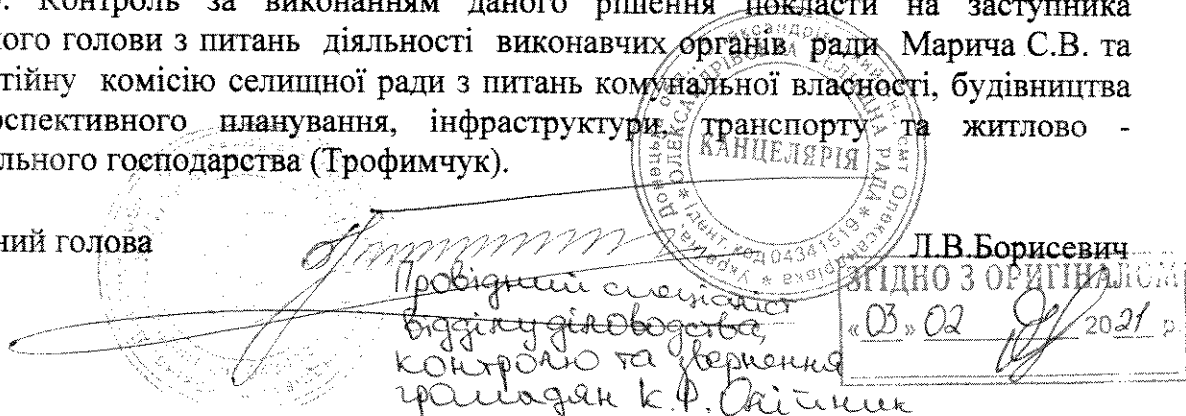 . Контроль за виконанням даного рішення покласти на заступника
ного голови з питань діяльності виконавчих органів ради Марича С.В. та
тійну комісію селищної ради з питань комунальної власності, будівництва
рспективного планування, інфраструктури, транспорту та житлово -
льного господарства (Трофимчук).
ний голова
Л.В.Борисевич
КАНЦЕЛЯРІЯ
Ідент код 04341519
ОЛЕКСАНДРІВСЬКА СЕЛИЩНА РАДА
Провідний спеціаліст
відділу діловодства,
контролю та звернення
громадян К.Ф. Олійник
ЗГІДНО З ОРИГІНАЛОМ
«03» 02 2021 р.